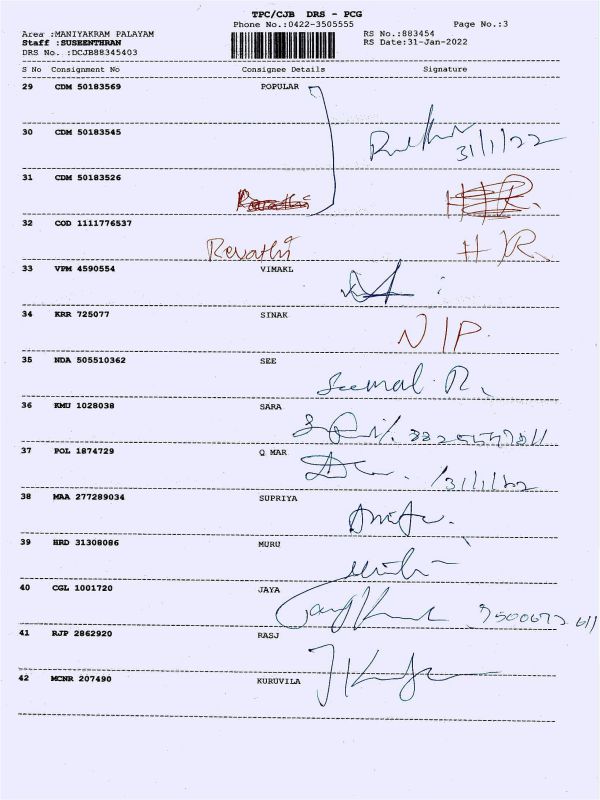 TPC/CJB DRS - PCG
Phone No.:0422-3505555 Page No.:3
Area :MANIYAKRAM PALAYAM RS No.:883454
Staff :SUSEENTHRAN RS Date:31-Jan-2022
DRS No. :DCJB88345403
S No Consignment No Consignee Details Signature
29 CDM 50183569 POPULAR
30 CDM 50183545
31/1/22
31 CDM 50183526
32 COD 1111776537
Revathi
33 VPM 4590554 VIMAKL
34 KRR 725077 SINAK
N/P.
35 NDA 505510362 SEE
36 KMU 1028038 SARA
37 POL 1874729 Q MAR
/31/1/22
38 MAA 277289034 SUPRIYA
39 HRD 31308086 MURU
40 CGL 1001720 JAYA
41 RJP 2862920 RASJ
42 MCNR 207490 KURUVILA